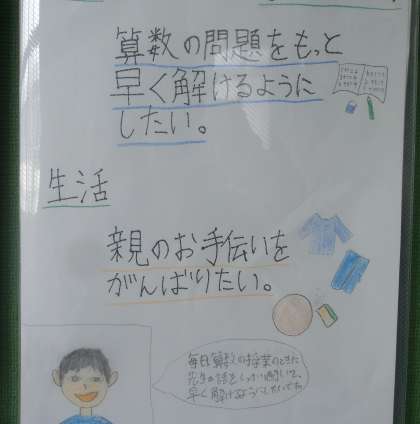 算数の問題をもっと
早く解けるように
したい。
生活
親のお手伝いを
がんばりたい。
毎日算数の授業のときに
先生の話をしっかり聞いて、
早く解けるようにしたいです。